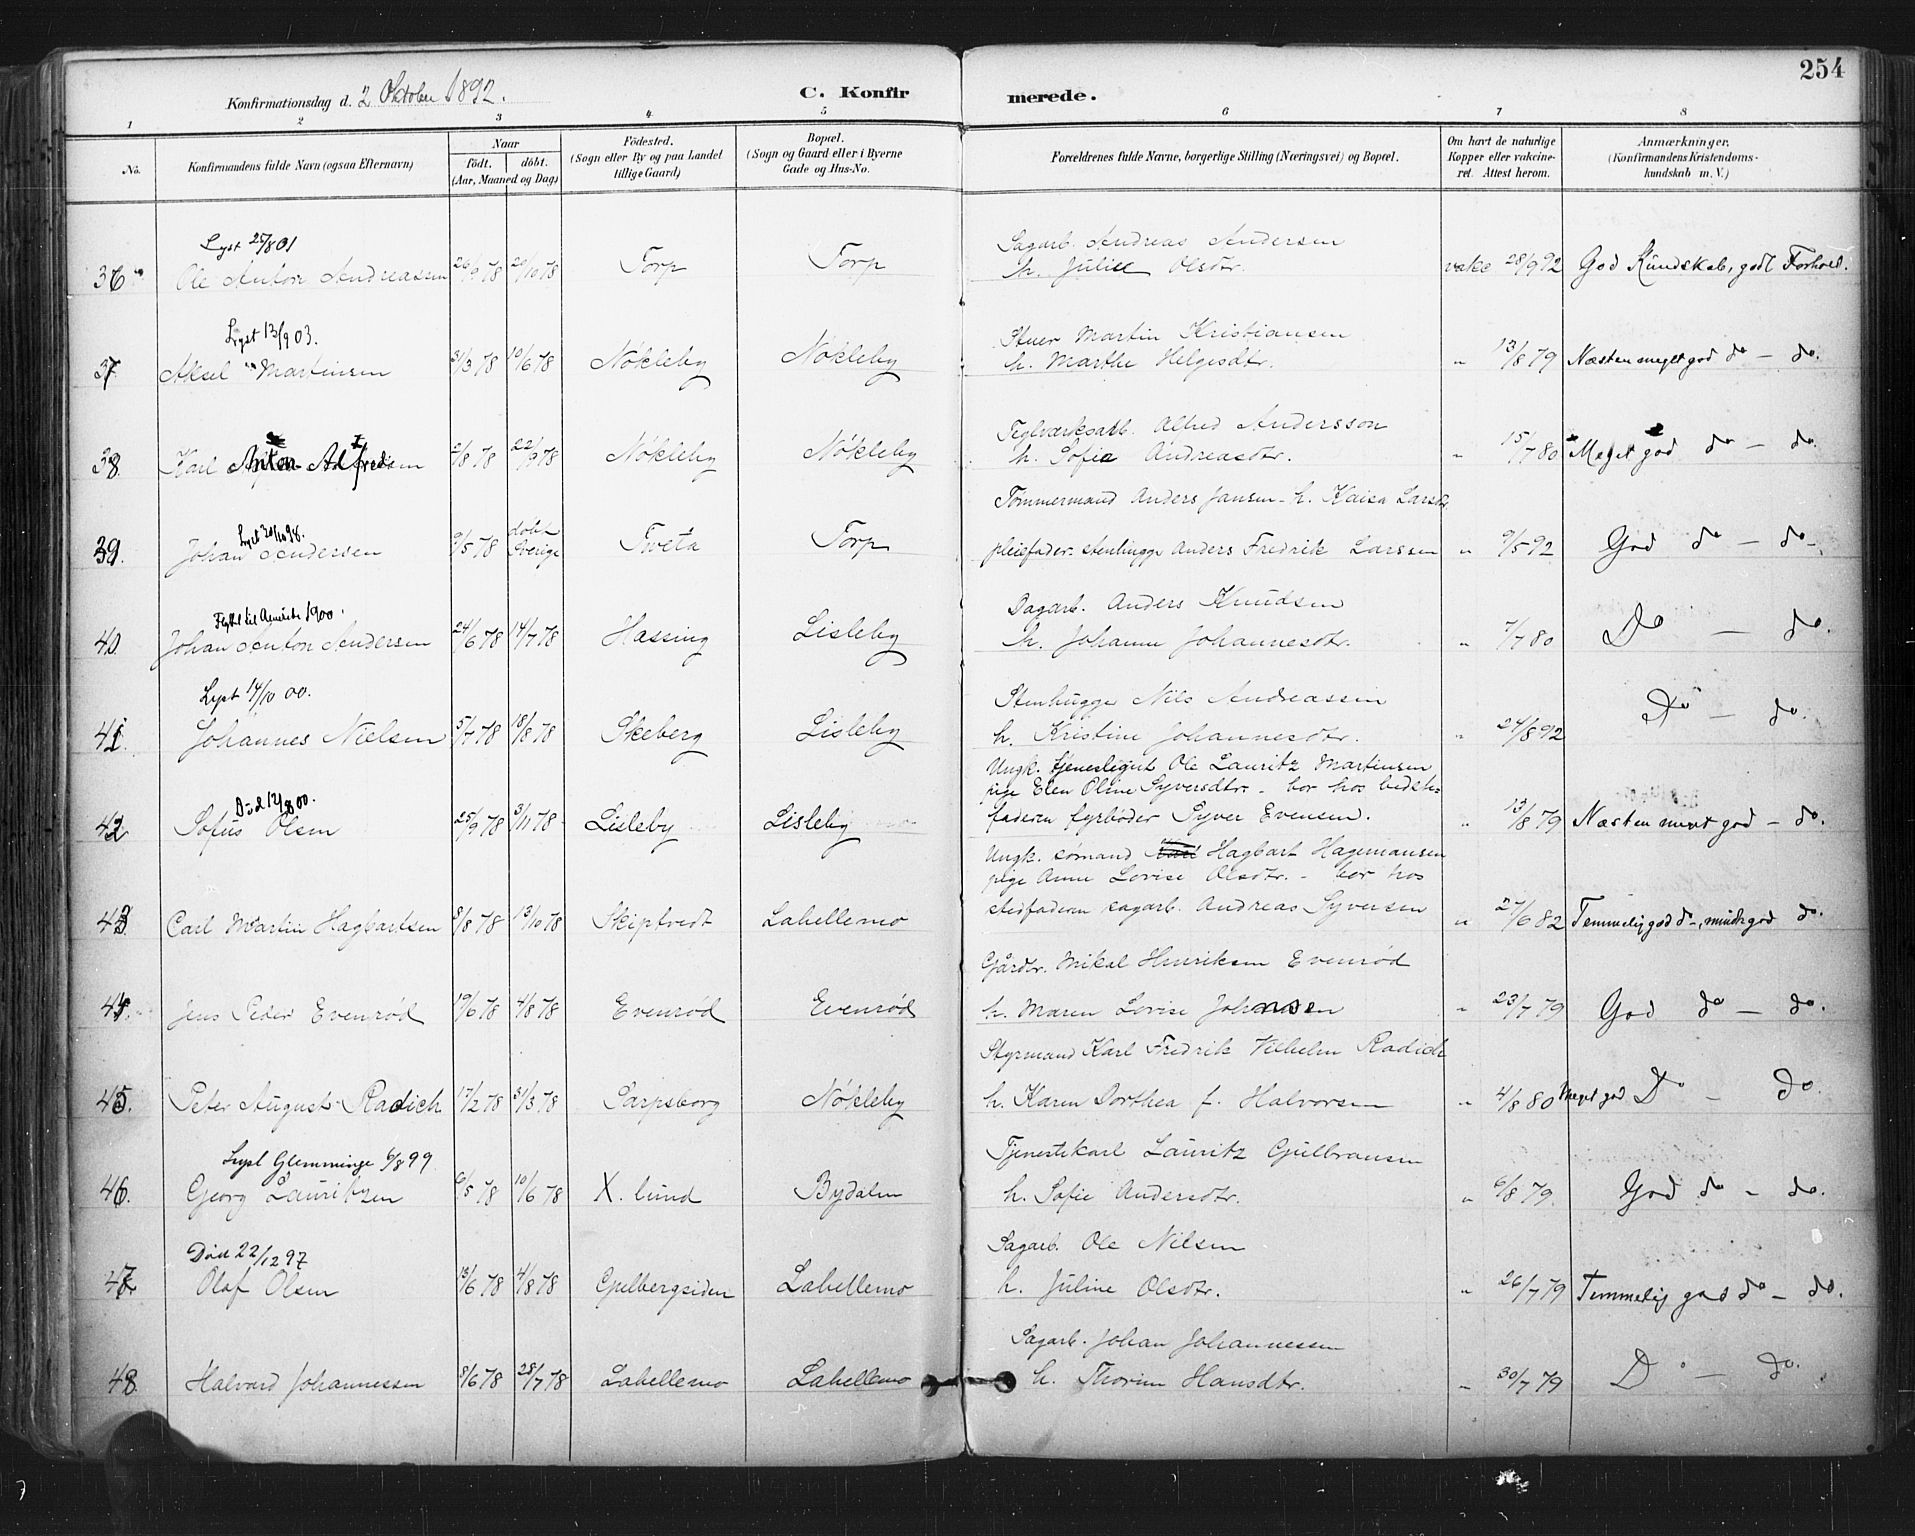 254
Konfirmationsdag d. 2 Oktober 1892.
C. Konfirmerede.
1 2 3 4. 5 6 7 8
No. Konfirmandens fulde Navn (ogsaa Efternavn) Naar födt. döbt. (Aar, Maaned og Dag) Födested. (Sogn eller By og paa Landet tillige Gaard) Bopæl. (Sogn og Gaard eller i Byerne Gade og Hus-No. Forældrenes fulde Navne, borgerlige Stilling (Næringsvei) og Bopæl. Om havt de naturlige Kopper eller vakcineret. Attest herom. Anmærkninger. (Konfirmandens Kristendomskundskab m. V.)
Lyst 25/8 01 Sagarb. Andreas Andersen
36 Ole Anton Andreassen 26/9 78 20/10 78 Torp Torp h. Julie Olsdtr. vakc 28/9 92 God Kundskab, godt Forhold.
Lyst 13/9 03. Stuer Martin Kristiansen
37. Aksel Martinsen 31/3 78 10/6 78 Nökleby Nökleby h. Marthe Helgesdtr. " 13/8 79 Næsten meget god do — do.
Teglværksarb. Alfred Andersson
38 Karl Anton Alfredsen 2/8 78 22/9 78 Nökleby Nökleby h. Sofie Andreasdtr. " 15/7 80 Meget god do — do.
Tömmermand Anders Jansen - h. Kaisa Larsdtr
Lyst 30/10 98.
39. Johan Andersen 9/5 78 döbt Sverige Tveta Torp pleiefader. stenhugge Anders Fredrik Larssen " 9/5 92 God do — do.
Flyttet til Amerika 1900. Dagarb. Anders Knudsen
40. Johan Anton Andersen 24/6 78 14/7 78 Hassing Lisleby h. Johanne Johannesdtr. " 7/7 80 Do — do.
Lyst 14/10 00. Stenhugge Nils Andreassen
41. Johannes Nielsen 5/7 78 18/8 78 Skeberg Lisleby h. Kristine Johannesdtr. " 24/8 92 Do — do.
Ungk. tjenestegut Ole Lauritz Martinsen
pige Elen Oline Syversdtr. - bor hos bedste-
Död 12/8 00.
42 Sofus Olsen 25/9 78 3/11 78 Lisleby Lisleby faderen fyrböder Syver Evensen. " 13/8 79 Næsten meget god — do.
Ungk. sömand Hagbart Hagemansen
pige Anne Lovise Olsdtr. - bor hos
43 Carl Martin Hagbartsen 8/8 78 13/10 78 Skiptvedt Labellemo stedfaderen sagarb. Andreas Syversen " 27/6 82 Temmelig god do, mindre god do.
Gårdbr. Mikal Henriksen Evenröd
44. Jens Peder Evenröd 19/6 78 4/8 78 Evenröd Evenröd h. Maren Lovise Johansen " 23/7 79 God do — do.
Styrmand Karl Fredrik Vilhelm Radich
45. Peter August Radich 17/2 78 31/3 78 Sarpsborg Nökleby h. Karen Dorthea f. Halvorsen " 4/8 80 Meget god Do — do.
Lyst Glemminge 6/8 99 Tjenestekarl Lauritz Gulbransen
46. Georg Lauritzen 6/5 78 10/6 78 X. lund Bydalen h. Sofie Andersdtr. " 6/8 79. God do — do.
Död 22/12 97 Sagarb. Ole Nilsen
47 Olaf Olsen 13/6 78 4/8 78 Gulbergsiden Labellemo h. Juline Olsdtr. " 26/7 79 Temmelig god do — do.
Sagarb. Johan Johannessen
48 Halvard Johannessen 8/6 78 28/7 78 Labellemo Labellemo h. Thorine Hansdtr. " 30/7 79 Do — do.